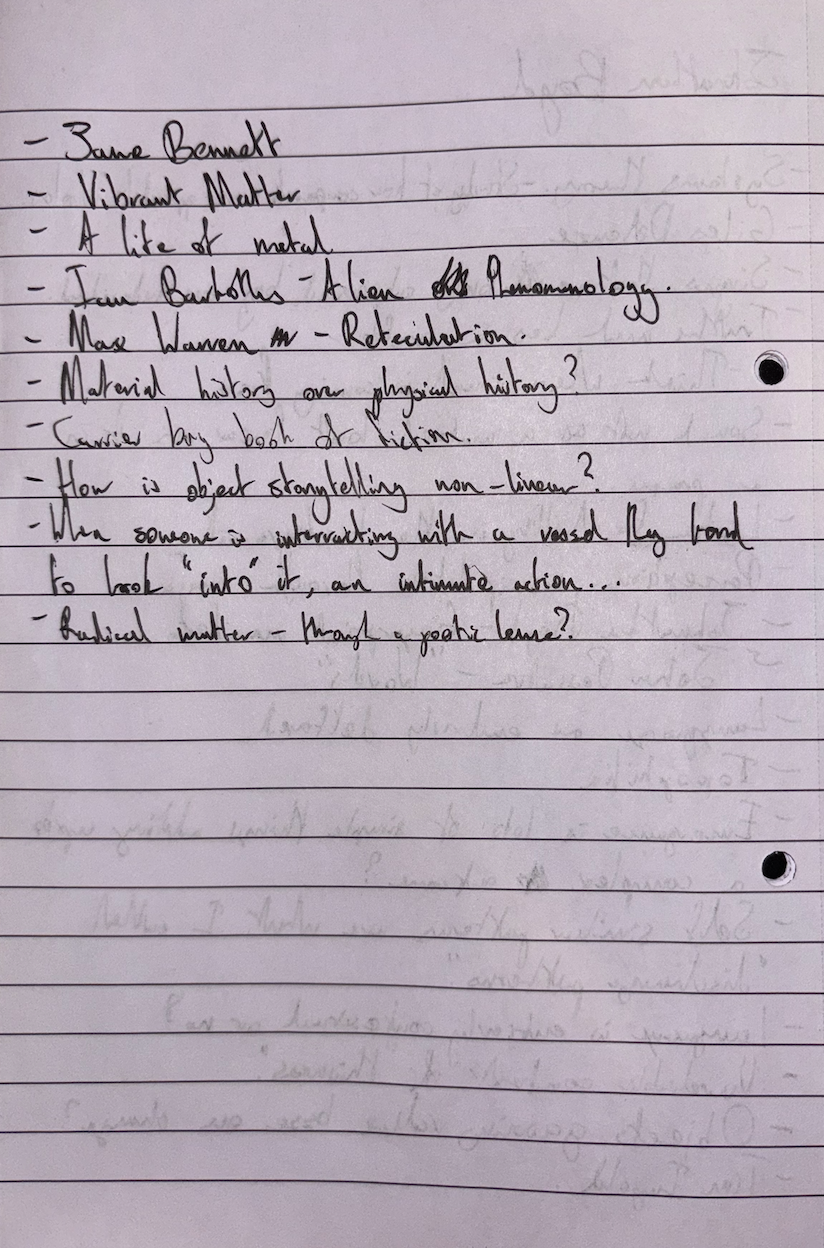 - Jane Bennett
- Vibrant Matter
- A life of metal
- Ian - Alien Phenomonology.
- Max Warren - Reticulation.
- Material history over physical history?
- Carrier bag book of fiction.
- How is object storytelling non-linear?
- When someone is interracting with a vessel they tend
to look "into" it, an intimate action...
- Radical matter - through a poetic lense?